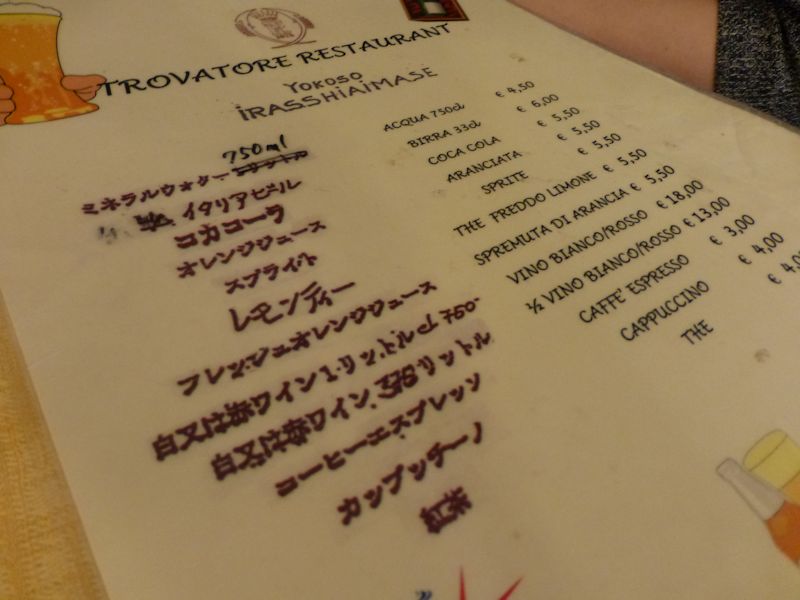 TROVATORE RESTAURANT
YOKOSO
iRASSHiAiMASE
750ml
ミネラルウォター
イタリアビール
コカコーラ
オレンジジュース
スプライト
レモンティー
フレッジュオレンジジュース
白又は赤ワイン1リットルcl 750
白又は赤ワイン リットル
コーヒーエスプレッソ
カップッチーノ
紅茶
ACQUA 750cl € 4,50
BIRRA 33cl € 6,00
COCA COLA € 5,50
ARANCIATA € 5,50
SPRITE € 5,50
THE FREDDO LIMONE € 5,50
SPREMUTA DI ARANCIA € 5,50
VINO BIANCO/ROSSO € 18,00
½ VINO BIANCO/ROSSO € 13,00
CAFFE' ESPRESSO € 3,00
CAPPUCCINO € 4,00
THE € 4,0